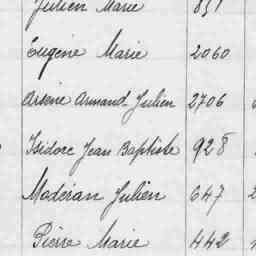 Julien Marie 831
Eugène Marie 2060
Arsène Armand Julien 2706
Isidore Jean Baptiste 928
Modéran Julien 647
Pierre Marie 442